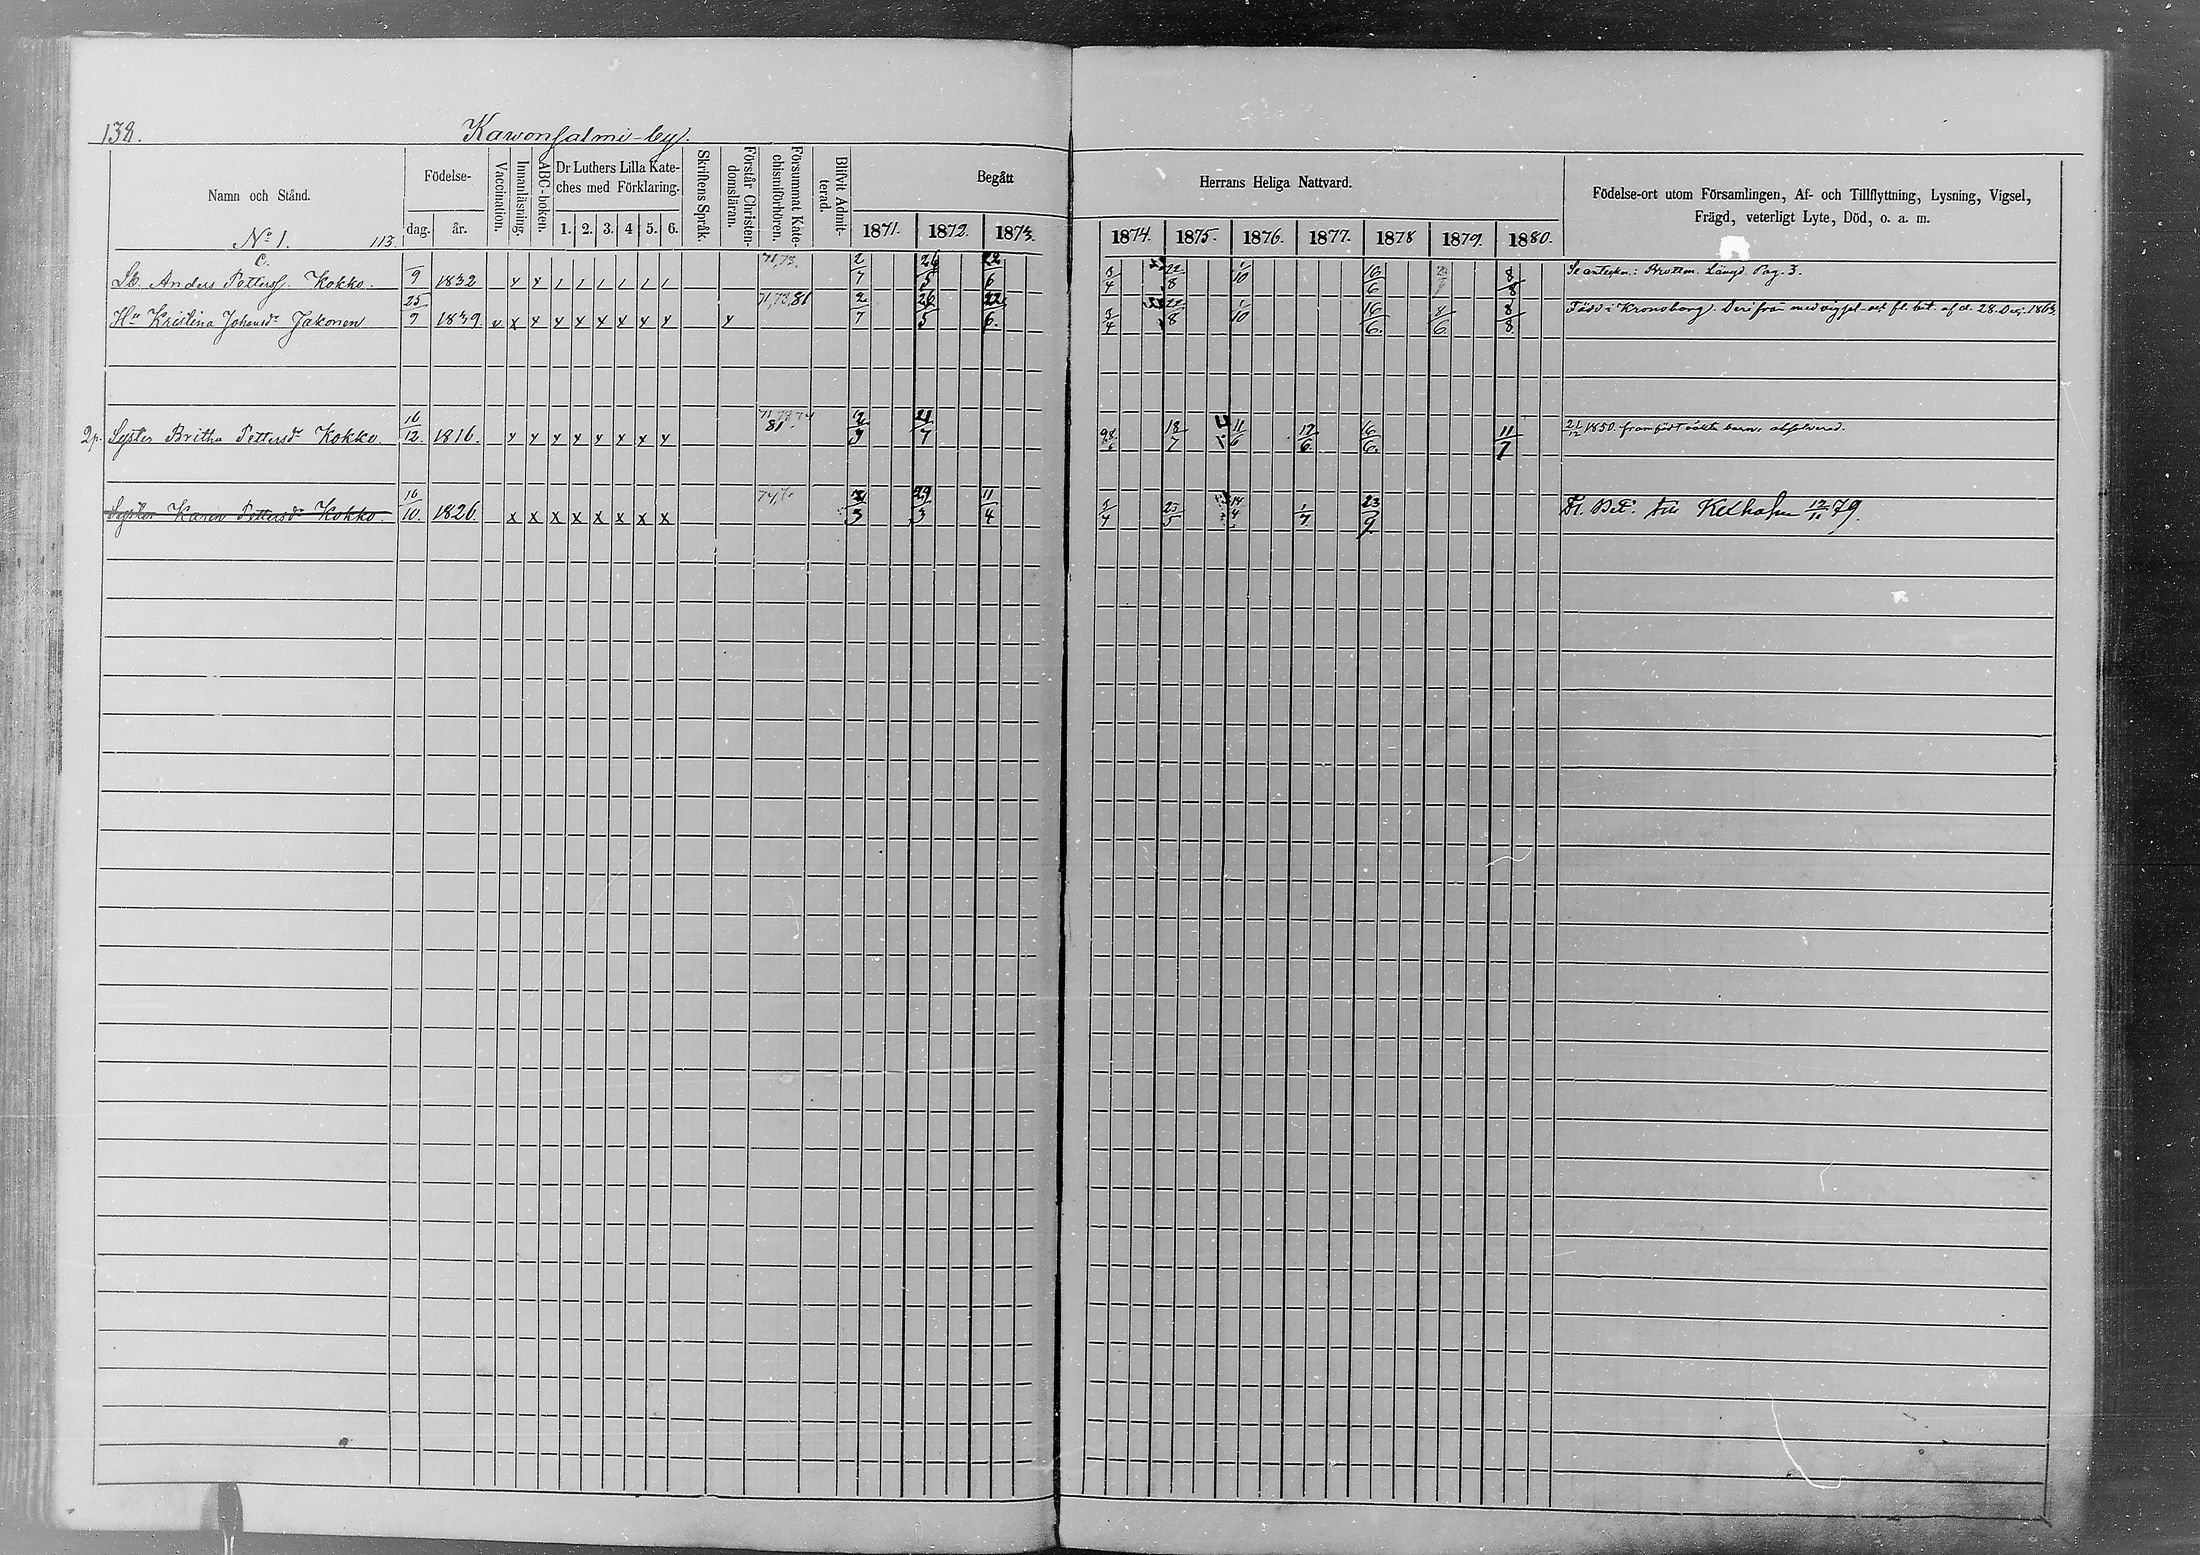 138.
Kawonsalmi-by.
Namn och Stånd.
Födelse-
dag. år.
Vaccination.
Innanläsning.
ABC-boken.
Dr Luthers Lilla Kate-
ches med Förklaring.
1. 2. 3. 4 5. 6.
Skriftens Språk.
Förstår Christen-
domsläran.
Försummat Kate-
chismiförhören.
Blifvit Admit-
terad.
Begått
1871. 1872. 1873.
Herrans Heliga Nattvard.
1874. 1875. 1876. 1877. 1878 1879. 1880.
Födelse-ort utom Församlingen, Af- och Tillflyttning, Lysning, Vigsel,
Frägd, veterligt Lyte, Död, o. a. m.
No 1. 113.
C.
Anders Petterss. Kokko. 9 1832 x x / / / / / / 71,73. 2/7 26/5 22/6 3/4 22/8 1/10 16/6 8/8 Se anteckn: Brottm. Längd. Pag. 3.
Hu Kristina Johansdr Jakonen 25/9 1839. v x x x x x x x x x 71,73,81 2/7 26/5 22/6. 3/4 22/8 1/10 16/6. 8/6. 8/8 Född i Kronoborg. Derifrån med vigsel-att. fl. bet. af d. 28. Dec. 1863.
2p. Syster Britha Pettersdr Kokko. 16/12. 1816. x x x x x x x x 71,73,74 81. 12/3 21/7 18/7 11/6 17/6. 16/6. 11/7 21/12 1850. framfödt oäkta barn, absolverad.
Syster Karin Pettersdr Kokko. 16/10. 1826. x x x x x x x x 29/3 11/4 3/4 23/5 14/4 1/7 23/9 Fl. Bet. till Kexholm 12/11 79.